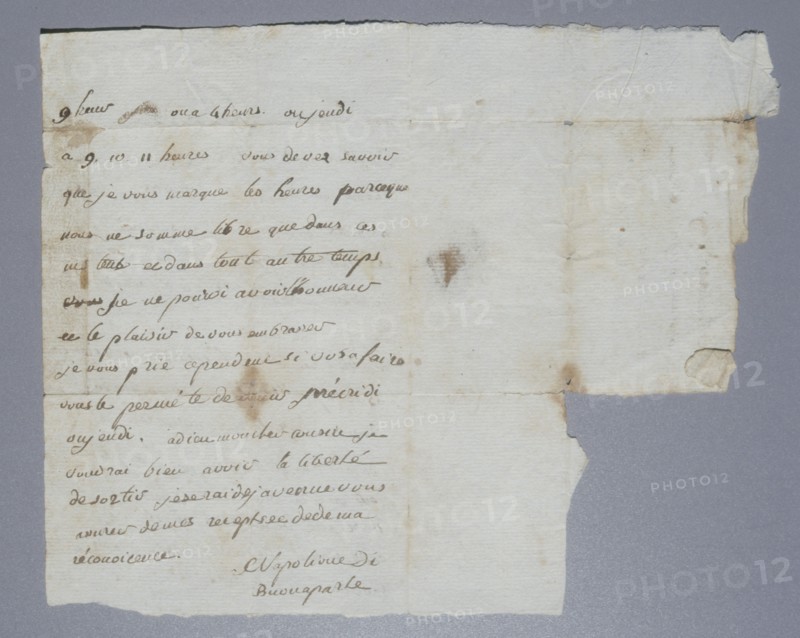 9 heur ou a 4 heurs. ou jeudi
a 9. 10 11 heures vous devez savoir
que je vous marque les heures parceque
nous ne somme libre que dans ces
et dans tout autre temps.
je ne pouroi avoir l'honneur
et le plaisir de vous embrasser
je vous prie cependent si vos afaire
vous le permete de venir mécridi
ou jeudi. adieu moncher cousin je
voudrai bien avoir la liberté
de sortir je serai deja venue vous
assurer de mes de de ma
réconoicence.
Napolione di
Buonaparte
PHOTO12